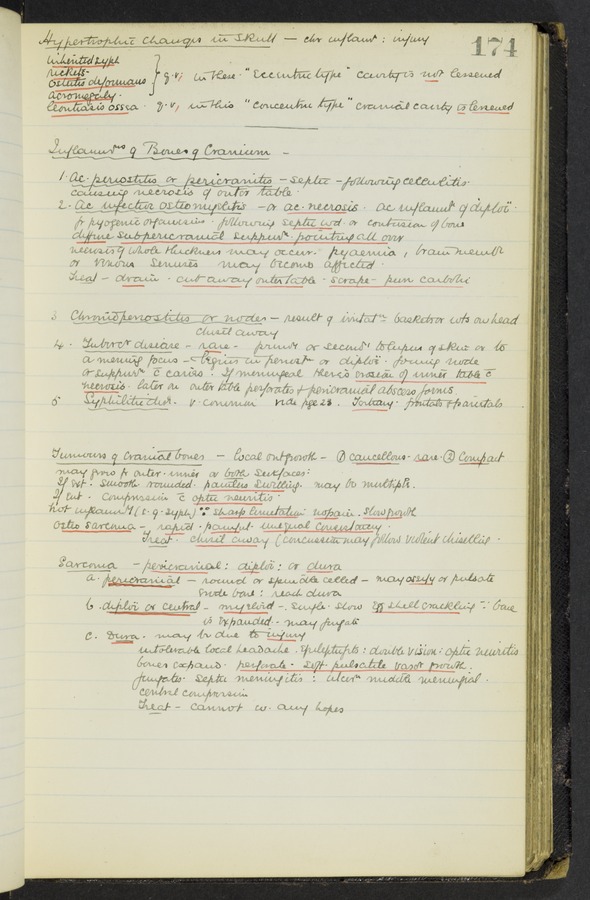 Hypertrophic changes in Skull - chr inflamn : injury
174
Inherited syph
rickets
Osteitis deformans } q.v, in these "Eccentric type" cavity is not lessened
Acromegaly.
Leontiasis ossea. q.v, in this "concentric type" cranial cavity is lessened
Inflammns of Bones of Cranium -
1. Ac. periostitis or pericranitis - septic - following cellulitis
causing necrosis of outer table.
2. Ac infective osteomyelitis - or ac. necrosis. ac inflamn of diploi
fr pyogenic organisms. following septic wd. or contusion of bone
diffuse subpericranial suppurn. pointing all over
necrosis of whole thickness may occur. pyaemia, brain membr
or venous sinuses may become affected.
Treat - drain. cut away outer table. scrape - pure carbolic
3 Chronic periostitis or nodes - result of irritatn baskets or wts on head
chisel away
4. Tuberct disease - rare - primr or secondr to lupus of skin or to
a mening focus - begins in periost or diploi. forming node
or suppurn c caries. If meningeal there is erosion of inner table c
necrosis. later on outer table perforates & pericranial abscess forms
5 Syphilitic dis. v. common vide pge 28. Tertiary. frontals & parietals
Tumours of cranial bones - local outgrowth - ① cancellous. rare. ② Compact
may grow fr outer. inner or both surfaces:
If ext. smooth rounded. painless swelling. may be multiple.
If int. compression c optic neuritis.
Not inflamm (e.g. syph) ∵ sharp limitation no pain. slow growth
Osteo sarcoma - rapid. painful. unequal consistency.
Treat. chisel away (concussion may follow violent chiselling.
Sarcoma - pericranial : diploi : or dura
a. pericranial - round or spindle celled - may ossify or pulsate
erode bone : reach dura
b. diploi or central - myeloid - single. slow egg shell crackling ∵ bone
is expanded. may fungate
c. Dura. may be due to injury
intolerable local headache. epilept fits : double vision. optic neuritis
bones expand. perforate. soft pulsatile vascr growth.
fungates. septic meningitis : ulcern middle meningeal.
central compression
Treat - cannot w. any hopes